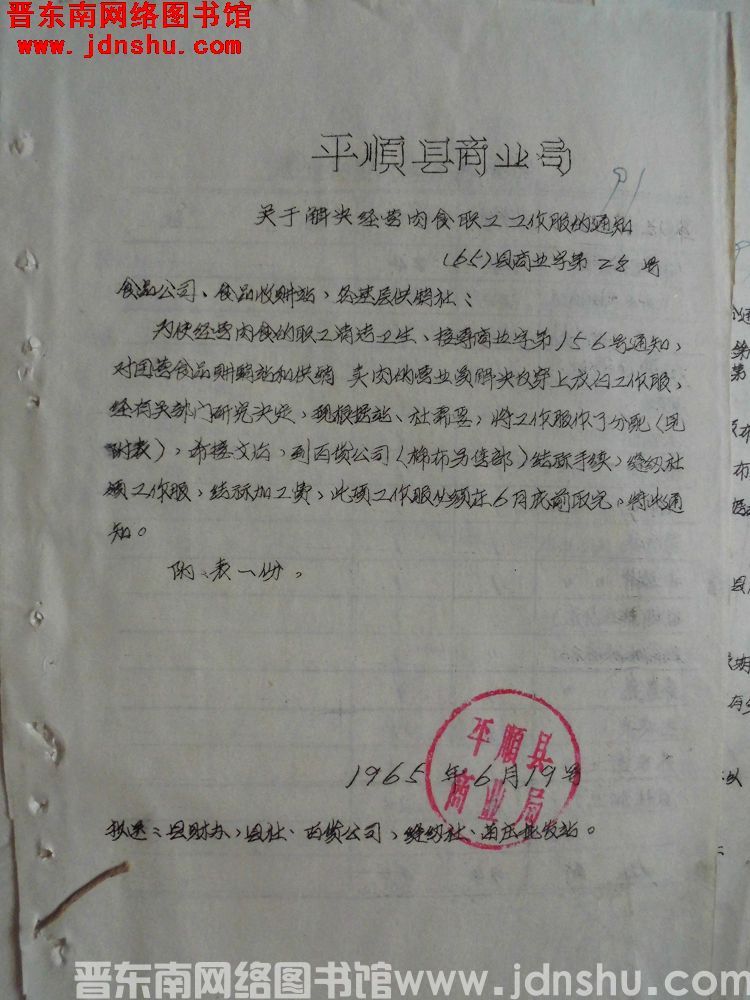 晋东南网络图书馆
www.jdnshu.com
平順县商业局
91
关于解决经营肉食职工工作服的通知
(65)县商业字第28号
食品公司、食品收购站、各基层供销社：
为使经营肉食的职工清洁卫生、接专商业字第156号通知，
对国营食品购销站和供销 卖肉的营业员解决收穿上放白工作服，
经有关部门研究决定，现根据站、社需要，将工作服作了分配(见
附表)，希接文后，到百货公司(棉布另售部)结称手续，缝纫社
领工作服，结称加工费，此项工作服必须在6月底前取完。特此通
知。
附：表一份，
平順县
商业局
1965年6月19号
抄送：县财办、县社、百货公司，缝纫社、苗庄批发站。
晋东南网络图书馆www.jdnshu.com